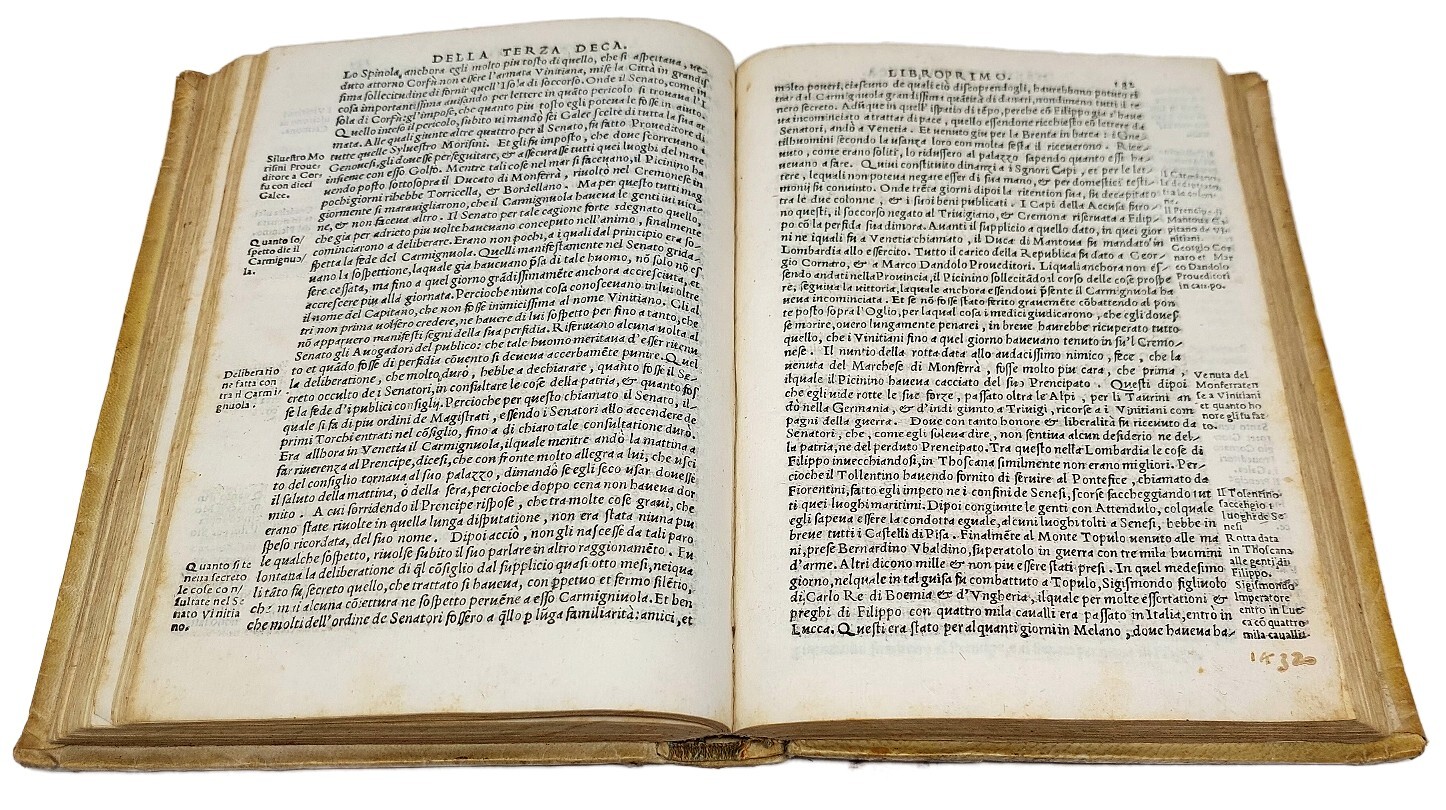 DELLA TERZA DECA.
Lo Spinola, anchora egli molto piu tosto di quello, che si aspettaua, ue-
duto attorno Corfù non eſſere l'armata Vinitiana, miſe la Città in grandiſ
ſima ſollecitudine di fornir quell'Iſola di ſoccorſo. Onde il Senato, come in
coſa importantiſſima auiſando per lettere in quãto pericolo ſi trouaua l'I
ſola di Corfù: gl'impoſe, che quanto piu toſto egli poteua le foſſe in aiuto.
Quello inteſo il pericolo, ſubito ui mandò ſei Galee ſcelte di tutta la ſua ar
mata. Alle quali giunte altre quattro per il Senato, fu fatto Proueditore di
tutte quelle Sylueſtro Moriſini. Et gli fu impoſto, che doue ſcorreuano i
Genoueſi, gli doueſſe perſeguitare, & aſſecuraſſe tutti quei luoghi del mare
inſieme con eſſo Golfo. Mentre tali coſe nel mar ſi faceuano, il Picinino ha
uendo poſto ſottoſopra il Ducato di Monferrà, riuoltò nel Cremoneſe in
pochi giorni ribebbe Torricella, & Bordellano. Ma per queſto tutti mag
giormente ſi marauigliarono, che il Carmignuola haueua le genti ui uici-
ne, & non faceua altro. Il Senato per tale cagione forte ſdegnato quello,
che gia per adrieto piu uolte haueuano conceputo nell'animo, finalmente
cominciarono a deliberare. Erano non pochi, a i quali dal principio era ſo-
ſpetta la fede del Carmignuola. Quelli manifeſtamente nel Senato grida-
uano la ſoſpettione, laquale gia haueuano piſa di tale huomo, nõ ſolo nõ eſ
ſere ceſſata, ma fino a quel giorno grãdiſſimamẽte anchora accreſciuta, et
accreſcere piu alla giornata. Percioche niuna coſa conoſceuano in lui oltre
il nome del Capitano, che non foſſe inimiciſſima al nome Vinitiano. Gli al
tri non prima uolſero credere, ne hauere di lui ſoſpetto per fino a tanto, che
nõ apparuero manifeſti ſegni della ſua perfidia. Riferiuano alcuna uolta al
Senato gli Auogadori del publico: che tale huomo meritaua d'eſſer ritenu
to et quãdo foſſe di perfidia cõuento ſi deueua acerbamẽte punire. Quel
la deliberatione, che molto durò, hebbe a dechiarare, quãto foſſe il Se-
creto occulto de i Senatori, in conſultare le coſe della patria, & quanto foſ
ſe la fede d'i publici conſigly. Percioche per queſto chiamato il Senato, il-
quale ſi fa di piu ordini de Magiſtrati, eſſendo i Senatori allo accendere de
primi Torchi entrati nel cõſiglio, fino a di chiaro tale conſultatione durò.
Era allhora in Venetia il Carmignuola, ilquale mentre andò la mattina a
far riuerenza al Prencipe, diceſi, che con fronte molto allegra a lui, che uſci
to del conſiglio tornaua al ſuo palazzo, dimandò ſe egli ſeco uſar doueſſe
il ſaluto della mattina, ò della ſera, percioche doppo cena non haueua dor
mito. A cui ſorridendo il Prencipe riſpoſe, che tra molte coſe graui, che
erano ſtate riuolte in quella lunga diſputatione, non era ſtata niuna piu
ſpeſo ricordata, del ſuo nome. Dipoi acciò, non gli naſceſſe da tali paro
le qualche ſoſpetto, riuolſe ſubito il ſuo parlare in altro raggionamẽto. Fu
lontana la deliberatione di q̃l cõſiglio dal ſupplicio quaſi otto meſi, ne iqua
li tãto fu ſecreto quello, che trattato ſi haueua, con ꝑpetuo et fermo ſilẽtio,
che mai alcuna cõiettura ne ſoſpetto peruẽne a eſſo Carmigniuola. Et ben
che molti dell'ordine de Senatori foſſero a q̃llo ꝑ lũga familiarità: amici, et
Silueſtro Mo
riſini Proue-
ditore a Cor
fu con dieci
Galee.
Quanto ſo/
ſpetto die il
Carmignuo/
la.
Deliberatio
ne fatta con
tra il Carmi
gnuola.
Quanto ſi te
neua ſecreto
le coſe co n/
ſultate nel Se
nato Vinitia
no.
LIBRO PRIMO. 192
molto poueri, ciaſcuno de quali ciò diſcoprendogli, haurebbono potuto ri
trar dal Carmignuola grandiſſima quãtità di danari, nondimeno tutti il te
nero ſecreto. Adũque in queſt'iſpatio di tẽpo, perche eſſo Filippo gia s'haue
ua incominciato a trattar di pace, quello eſſendone richieſto cõ lettere da
Senatori, andò a Venetia. Et uenuto giu per la Brenta in barca i i Gne-
tilhuomini ſecondo la uſanza loro con molta feſta il riceuerono. Rice-
uuto, come erano ſoliti, lo riduſſero al palazzo ſapendo quanto eſſi ha-
ueuano a fare. Quiui conſtituito dinanzi a i Sgnori Capi, et per le let-
tere, lequali non poteua negare eſſer di ſua mano, & per domeſtici teſti-
monij fu conuinto. Onde trẽta giorni dipoi la ritention ſua, fu decapitato
tra le due colonne, & i ſuoi beni publicati. I Capi della Accuſa ſuro-
no queſti, il ſoccorſo negato al Triuigiano, & Cremona riſeruata a Filip-
po cõ la perfida ſua dimora. Auanti il ſupplicio a quello dato, in quei gior
ni ne iquali fu a Venetia chiamato, il Duca di Mantoua fu mandato in
Lombardia allo eſſercito. Tutto il carico della Republica fu dato a Geor-
gio Cornaro, & a Marco Dandolo Proueditori. Liquali anchora non eſ-
ſendo andati nella Prouincia, il Picinino ſollecitãdo il corſo delle coſe proſpe
re, ſeguiua la uittoria, laquale anchora eſſendoui p̃ſente il Carmignuola ha
ueua incominciata. Et ſe nõ foſſe ſtato ferito grauemẽte cõbattendo al pon
te poſto ſopra l'Oglio, per laqual coſa i medici giudicarono, che egli doueſ
ſe morire, ouero lungamente penare, in breue haurebbe ricuperato tutto
quello, che i Vinitiani fino a quel giorno haueuano tenuto in ſu'l Cremo-
neſe. Il nuntio della rotta data allo audaciſſimo nimico, fece, che la
uenuta del Marcheſe di Monferrà, foſſe molto piu cara, che prima,
ilquale il Picinino haueua cacciato del ſuo Prencipato. Queſti dipoi
che egli uide rotte le ſue forze, paſſato oltra le Alpi, per li Taurini an
dò nella Germania, & d'indi giunto a Triuigi, ricorſe a i Vinitiani com
pagni della guerra. Doue con tanto honore & liberalità fu riceuuto da
Senatori, che, come egli ſoleua dire, non ſentiua alcun deſiderio ne del-
la patria, ne del perduto Prencipato. Tra queſto nella Lombardia le coſe di
Filippo inuecchiandoſi, in Thoſcana ſimilmente non erano migliori. Per-
cioche il Tollentino hauendo fornito di ſeruire al Pontefice, chiamato da
Fiorentini, fatto egli impeto ne i confini de Seneſi, ſcorſe ſaccheggiando tut
ti quei luoghi maritimi. Dipoi congiunte le genti con Attendulo, col quale
egli ſapeua eſſere la condotta eguale, alcuni luoghi tolti a Seneſi, hebbe in
breue tutti i Caſtelli di Piſa. Finalmẽte al Monte Topulo uenuto alle ma
ni, preſe Bernardino Vbaldino, ſuperatolo in guerra con tre mila huomini
d'arme. Altri dicono mille & non piu eſſere ſtati preſi. In quel medeſimo
giorno, nel quale in tal guiſa fu combattuto a Topulo, Sigiſmondo figliuolo
di Carlo Re di Boemia & d'Vngheria, ilquale per molte eſſortationi &
preghi di Filippo con quattro mila caualli era paſſato in Italia, entrò in
Lucca. Queſti era ſtato per alquanti giorni in Melano, doue haueua ha-
Il Prencipe di
Mantoua Ca
pitano de Vi
nitiani.
Georgio Cor
naro et Mar
co Dandolo
Proueditori
in campo.
Venuta del
Monferraten
ſe a Vinitiani
et quanto ho
nore gli fu fat
to.
Il Tolentino
ſaccheggio i
luoghi de Se
neſi
Rotta data
in Thoſcana
alle genti di
Filippo.
Sigiſmondo
Imperatore
entro in Luc
ca cõ quattro
mila caualli.
1432